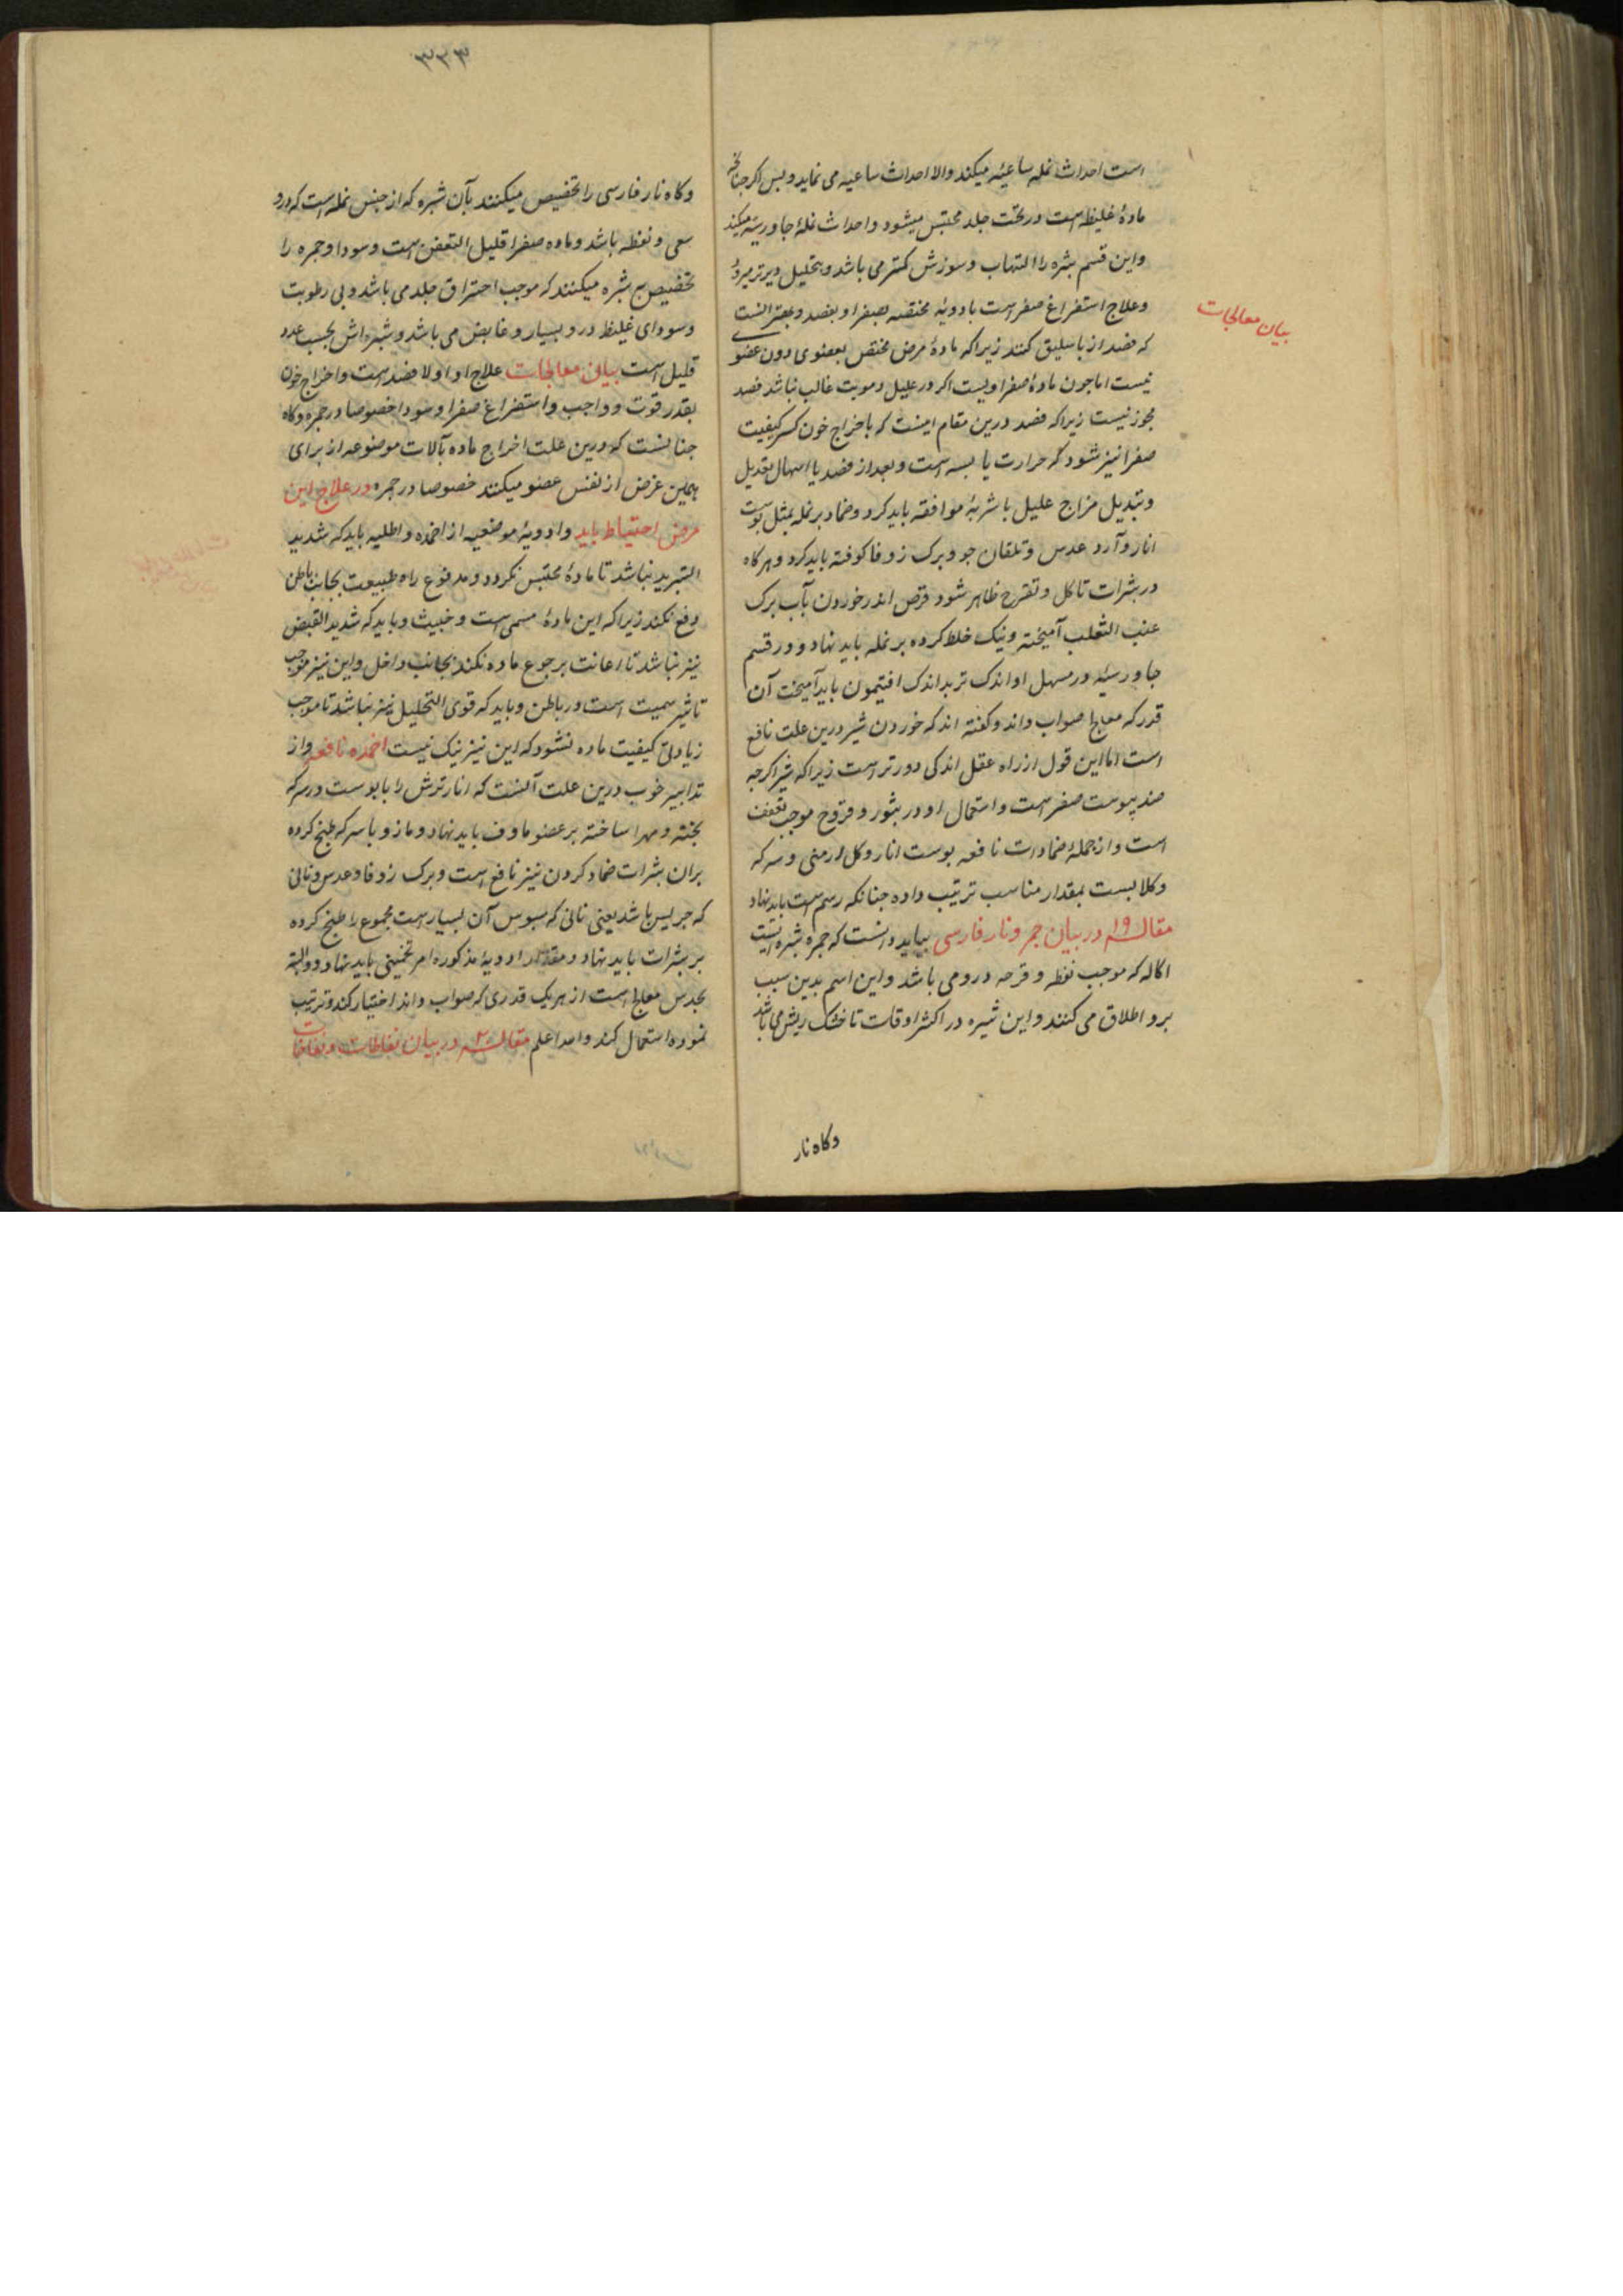 است احداث نمله ساعیه میکند والا احداث ساعیه می نماید و بس اکر جنانچه
ماده غلیظ است در تحت جلد محتبس میشود و احداث نملهٔ جاورسیه میکند
واین قسم بثره را التهاب و سوزش کمتر می باشد و بتحلیل دیرتر میرود
وعلاج استفراغ صفراست بادویهٔ مختصه بصفرا و بفصد و بهتر آنست
بیان معالجات
که فصد از باسلیق کنند زیرا که مادهٔ مرض مختص بعضوی دون عضو
نیست اما جون مادهٔ صفراویست اکر در علیل دمویت غالب نباشد فصد
مجوز نیست زیرا که فصد درین مقام اینست که باخراج خون کسر کیفیت
صفرا نیز شود که حرارت یابسه است و بعد از فصد یا اسهال تعدیل
وتبدیل مزاج علیل باشربهٔ موافقه باید کرد و ضماد بر نمله بمثل پوست
انار و آرد عدس و تلقان جو و برک زوفا کوفته باید کرد و هرکاه
در بثرات تاکل و تقرح ظاهر شود قرص اندرخورون بآب برک
عنب الثعلب آمیخته و نیک خلط کرده بر نمله باید نهاد و در قسم
جاورسیه در مسهل او اندک تربد اندک افتیمون باید آمیخت آن
قدر که معالج صواب داند و کفته اند که خوردن شیر درین علت نافع
است اما این قول از راه عقل اندکی دورتر است زیرا که شیر اکرجه
ضد یبوست صفر است و استعمال او در بثور و قروح موجب تعفن
است و از جملهٔ ضمادات نافعه بوست انار و کل ارمنی و سرکه
وکلابست بمقدار مناسب ترتیب داده جنانکه رسم است باید نهاد
مقاله ۱۹ در بیان جمر و نار فارسی بباید دانست که جمره بثره ایست
اکاله که موجب نفطه و قرحه در وی باشد و این اسم بدین سبب
برو اطلاق می کنند و این بثره در اکثر اوقات تا خشک ریش می باشد
وکاه نار
۳۳۳
وکاه نار فارسی را تخصیص میکنند بآن بثره که از جنس نمله است که درو
سعی و نفطه باشد و ماده صفرا قلیل التعفن است و سودا و جمره را
تخصیص به بثره میکنند که موجب احتراق جلد می باشد و بی رطوبت
وسودای غلیظ درو بسیار و غایض می باشد و بثره اش بحسب عدد
قلیل است بیان معالجات علاج او اولا فصد است و اخراج خون
بقدر قوت و واجب و استفراغ صفرا و سودا خصوصا در جمره و کاه
جنانست که درین علت اخراج ماده بآلات موضوعه از برای
همین غرض از نفس عضو میکنند خصوصا در جمره در علاج این
مرض احتیاط باید وادویهٔ موضعیه از اضمده و اطلیه باید که شدید
التبرید نباشد تا مادهٔ محتبس نکردد و مدفوع راه طبیعت بجانب باطن
دفع نکند زیرا که این مادهٔ سمی است و خبیث و باید که شدید القبض
نیز نباشد تا اعانت برجوع ماده نکند بجانب داخل و این نیز موجب
تاثیر سمیت است در باطن و باید که قوی التحلیل نیز نباشد تا موجب
زیادتی کیفیت ماده نشود که این نیز نیک نیست اضمده نافعه و از
تدابیر خوب درین علت آنست که انار ترش را با پوست در سرکه
بخته و مهرا ساخته بر عضو ماوف باید نهاد و مازو باسرکه طبخ کرده
بران بثرات ضماد کردن نیز نافع است و برک زوفا و عدس و نانی
که جریس باشد یعنی نانی که سبوس آن بسیار است مجموع را طبخ کرده
بر بثرات باید نهاد و مقدار ادویهٔ مذکوره امر تخمینی باید نهاد و والبته
بحدس معالج است از هر یک قدری که صواب داند اختیار کند و ترتیب
نموده استعمال کند والله اعلم مقاله ۲۰ در بیان نفاطات و نفاخات